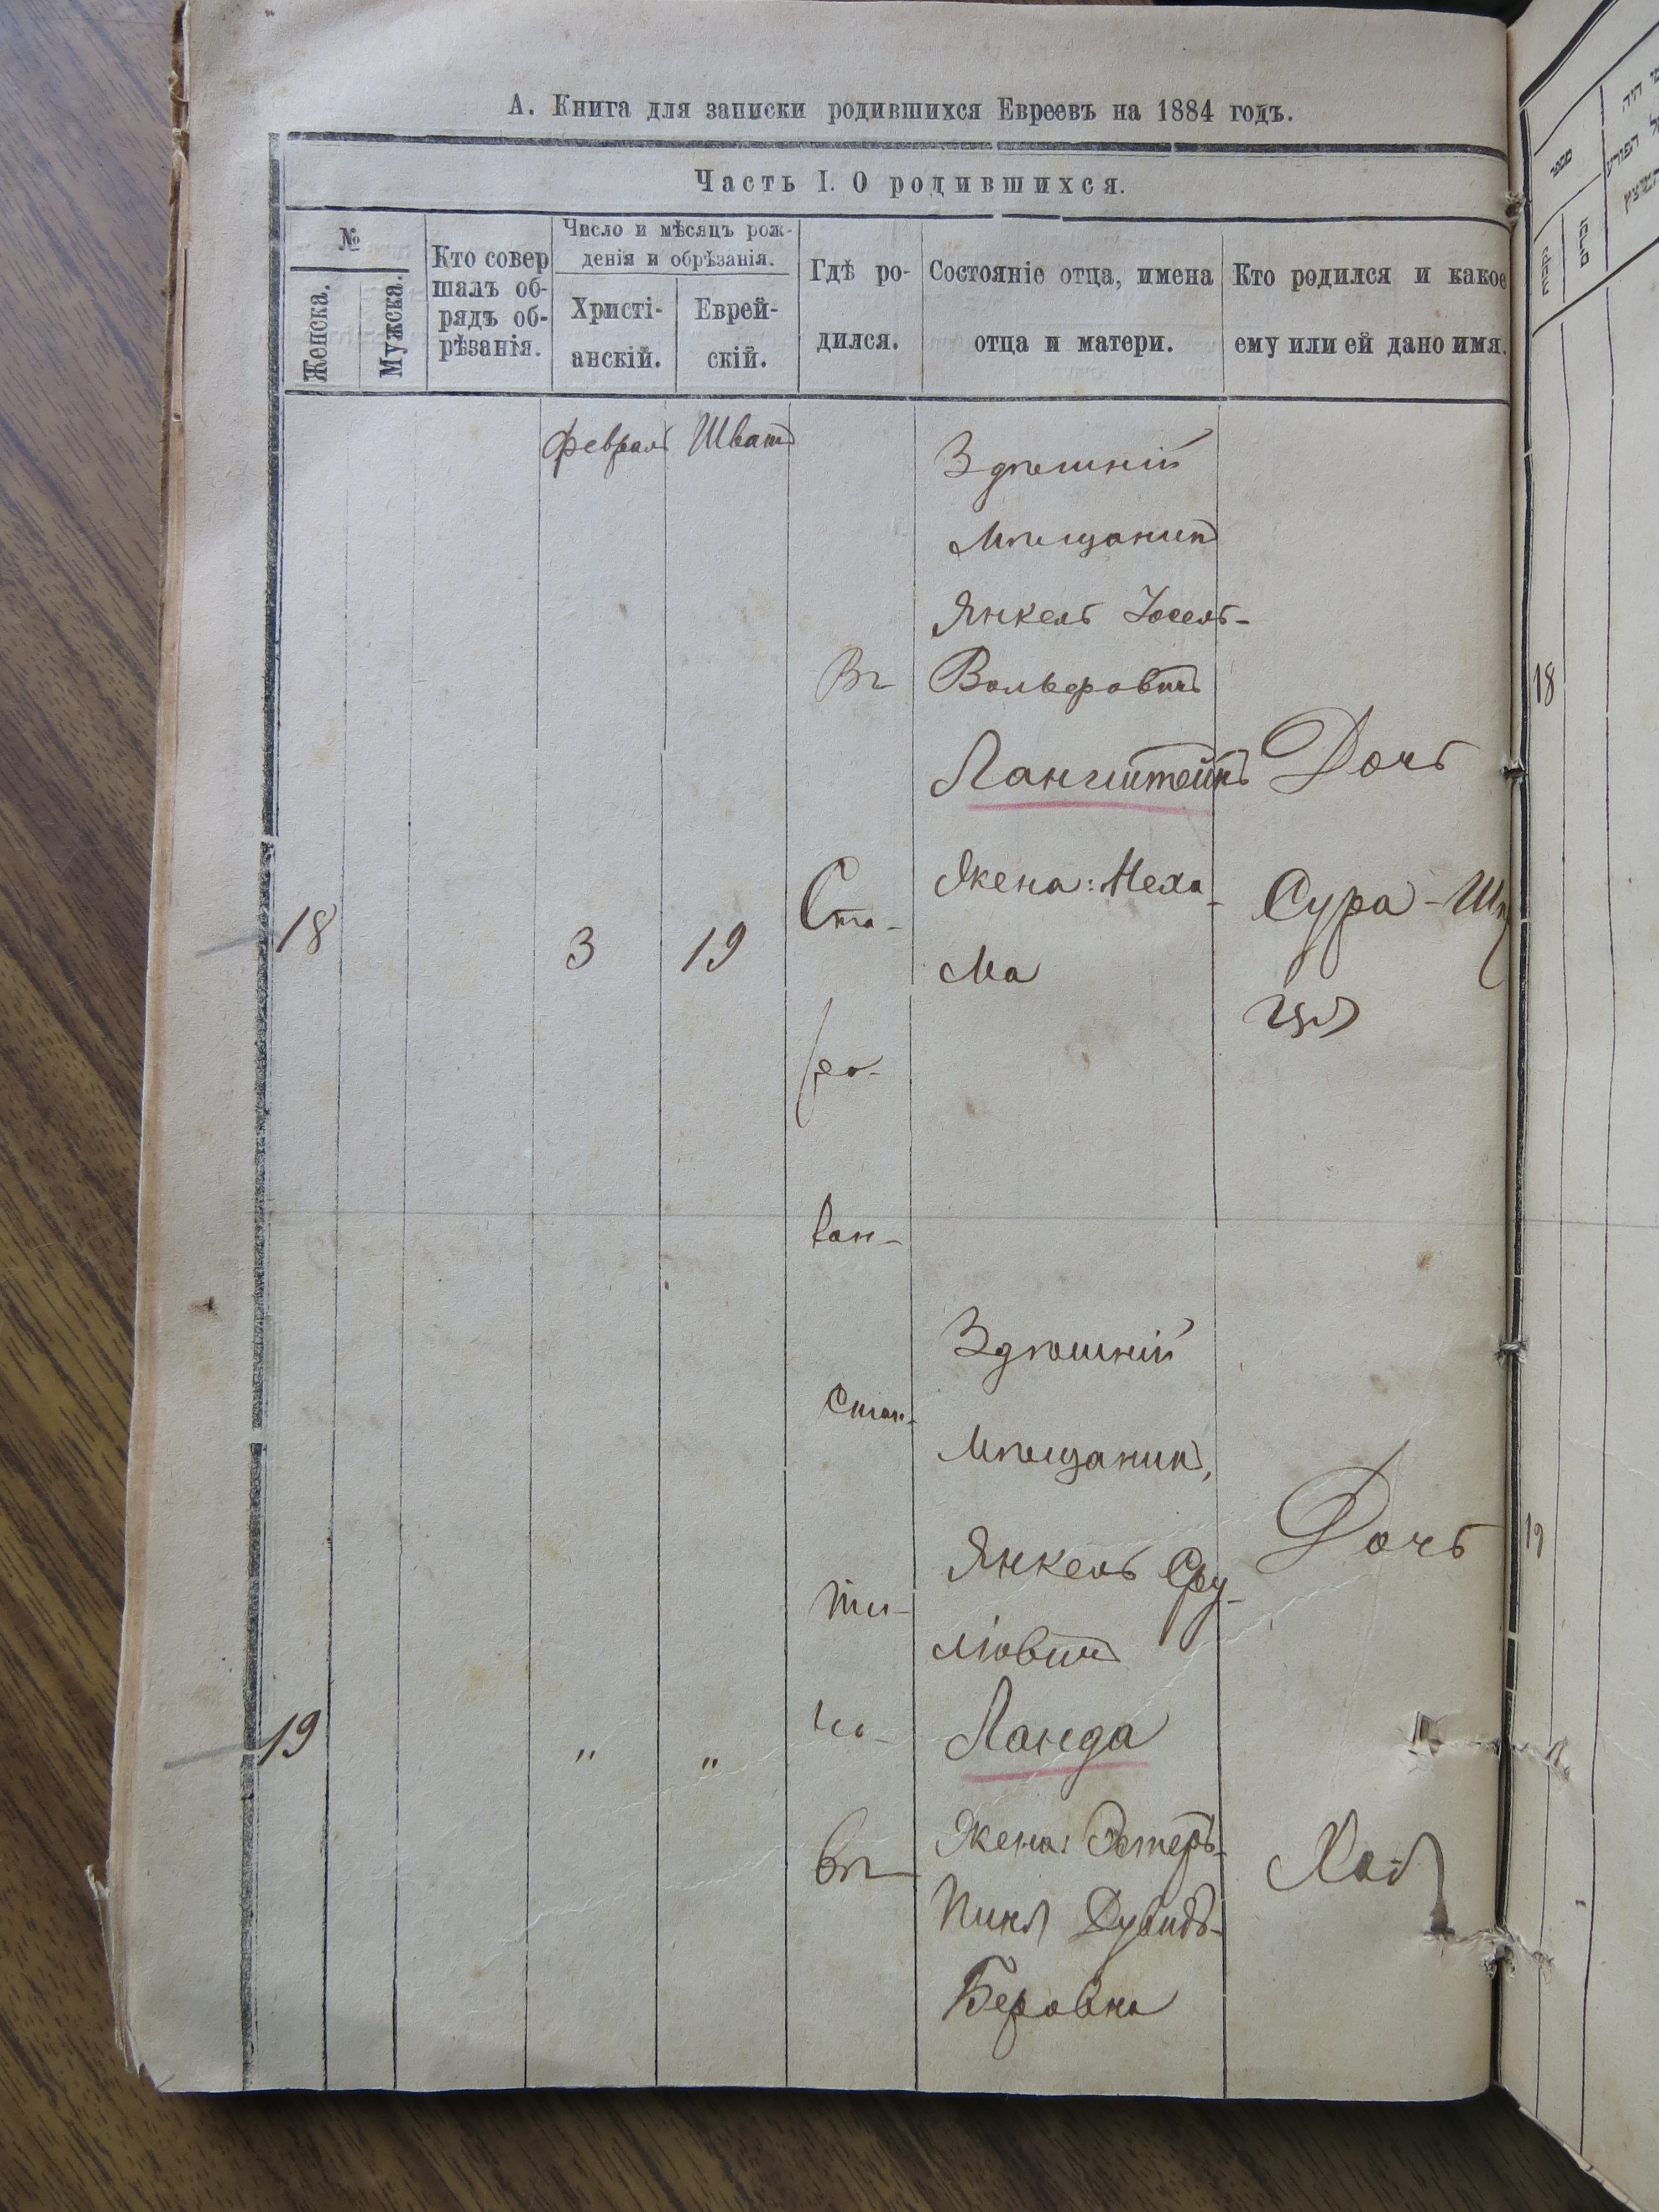 А. Книга для записки родившихся Евреевъ на 1884 годъ.
Часть I. О родившихся.
№
Женска.
Мужска.
Кто совер
шалъ об-
рядъ об-
рѣзанія.
Число и мѣсяцъ рож-
денія и обрѣзанія.
Христі-
анскій.
Еврей-
скій.
Гдѣ ро-
дился.
Состояніе отца, имена
отца и матери.
Кто родился и какое
ему или ей дано имя.
Февраль Шватъ
18
3
19
Въ
Ста-
ро-
кон-
стан-
ти-
но-
вѣ
Здѣшній
мѣщанинъ
Янкель Іосель-
Вольфовичъ
Лангштейнъ
Жена: Неха-
ма
Дочь
Сура-
19
"
"
Здѣшній
мѣщанинъ,
Янкель Сру-
ліовичъ
Ланда
Жена: Эстеръ-
Пиня Дувидъ-
Беровна
Дочь
Хая
18
19
מספר